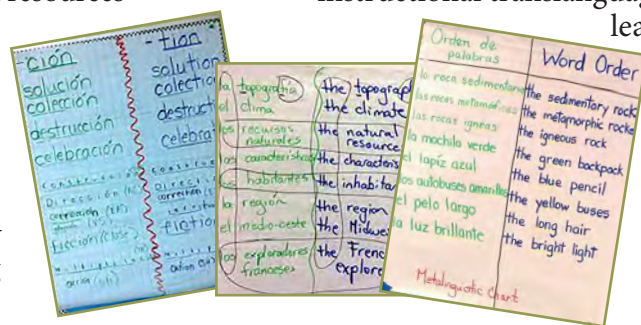 resources
instructional translanguag
lea
-ción
solución
colección
destrucción
celebración
Dirección
corrección
ficción
-tion
solution
colectio
destruct
celebrat
Direct
correction
fiction
la topografía
el clima
los recursos
naturales
las características
los habitantes
la región
el medio-oeste
los exploradores
franceses
the topograp
the climate
the natural
resource
the characteris
the inhabita
the region
the Midwe
the Frenc
explore
Orden de
palabras
la roca sedimentaria
las rocas metamórficas
las rocas ígneas
la mochila verde
el lapíz azul
los autobuses amarillos
el pelo largo
la luz brillante
Word Order
the sedimentary rock
the metamorphic rocks
the igneous rock
the green backpack
the blue pencil
the yellow buses
the long hair
the bright light
Metalinguistic Chart